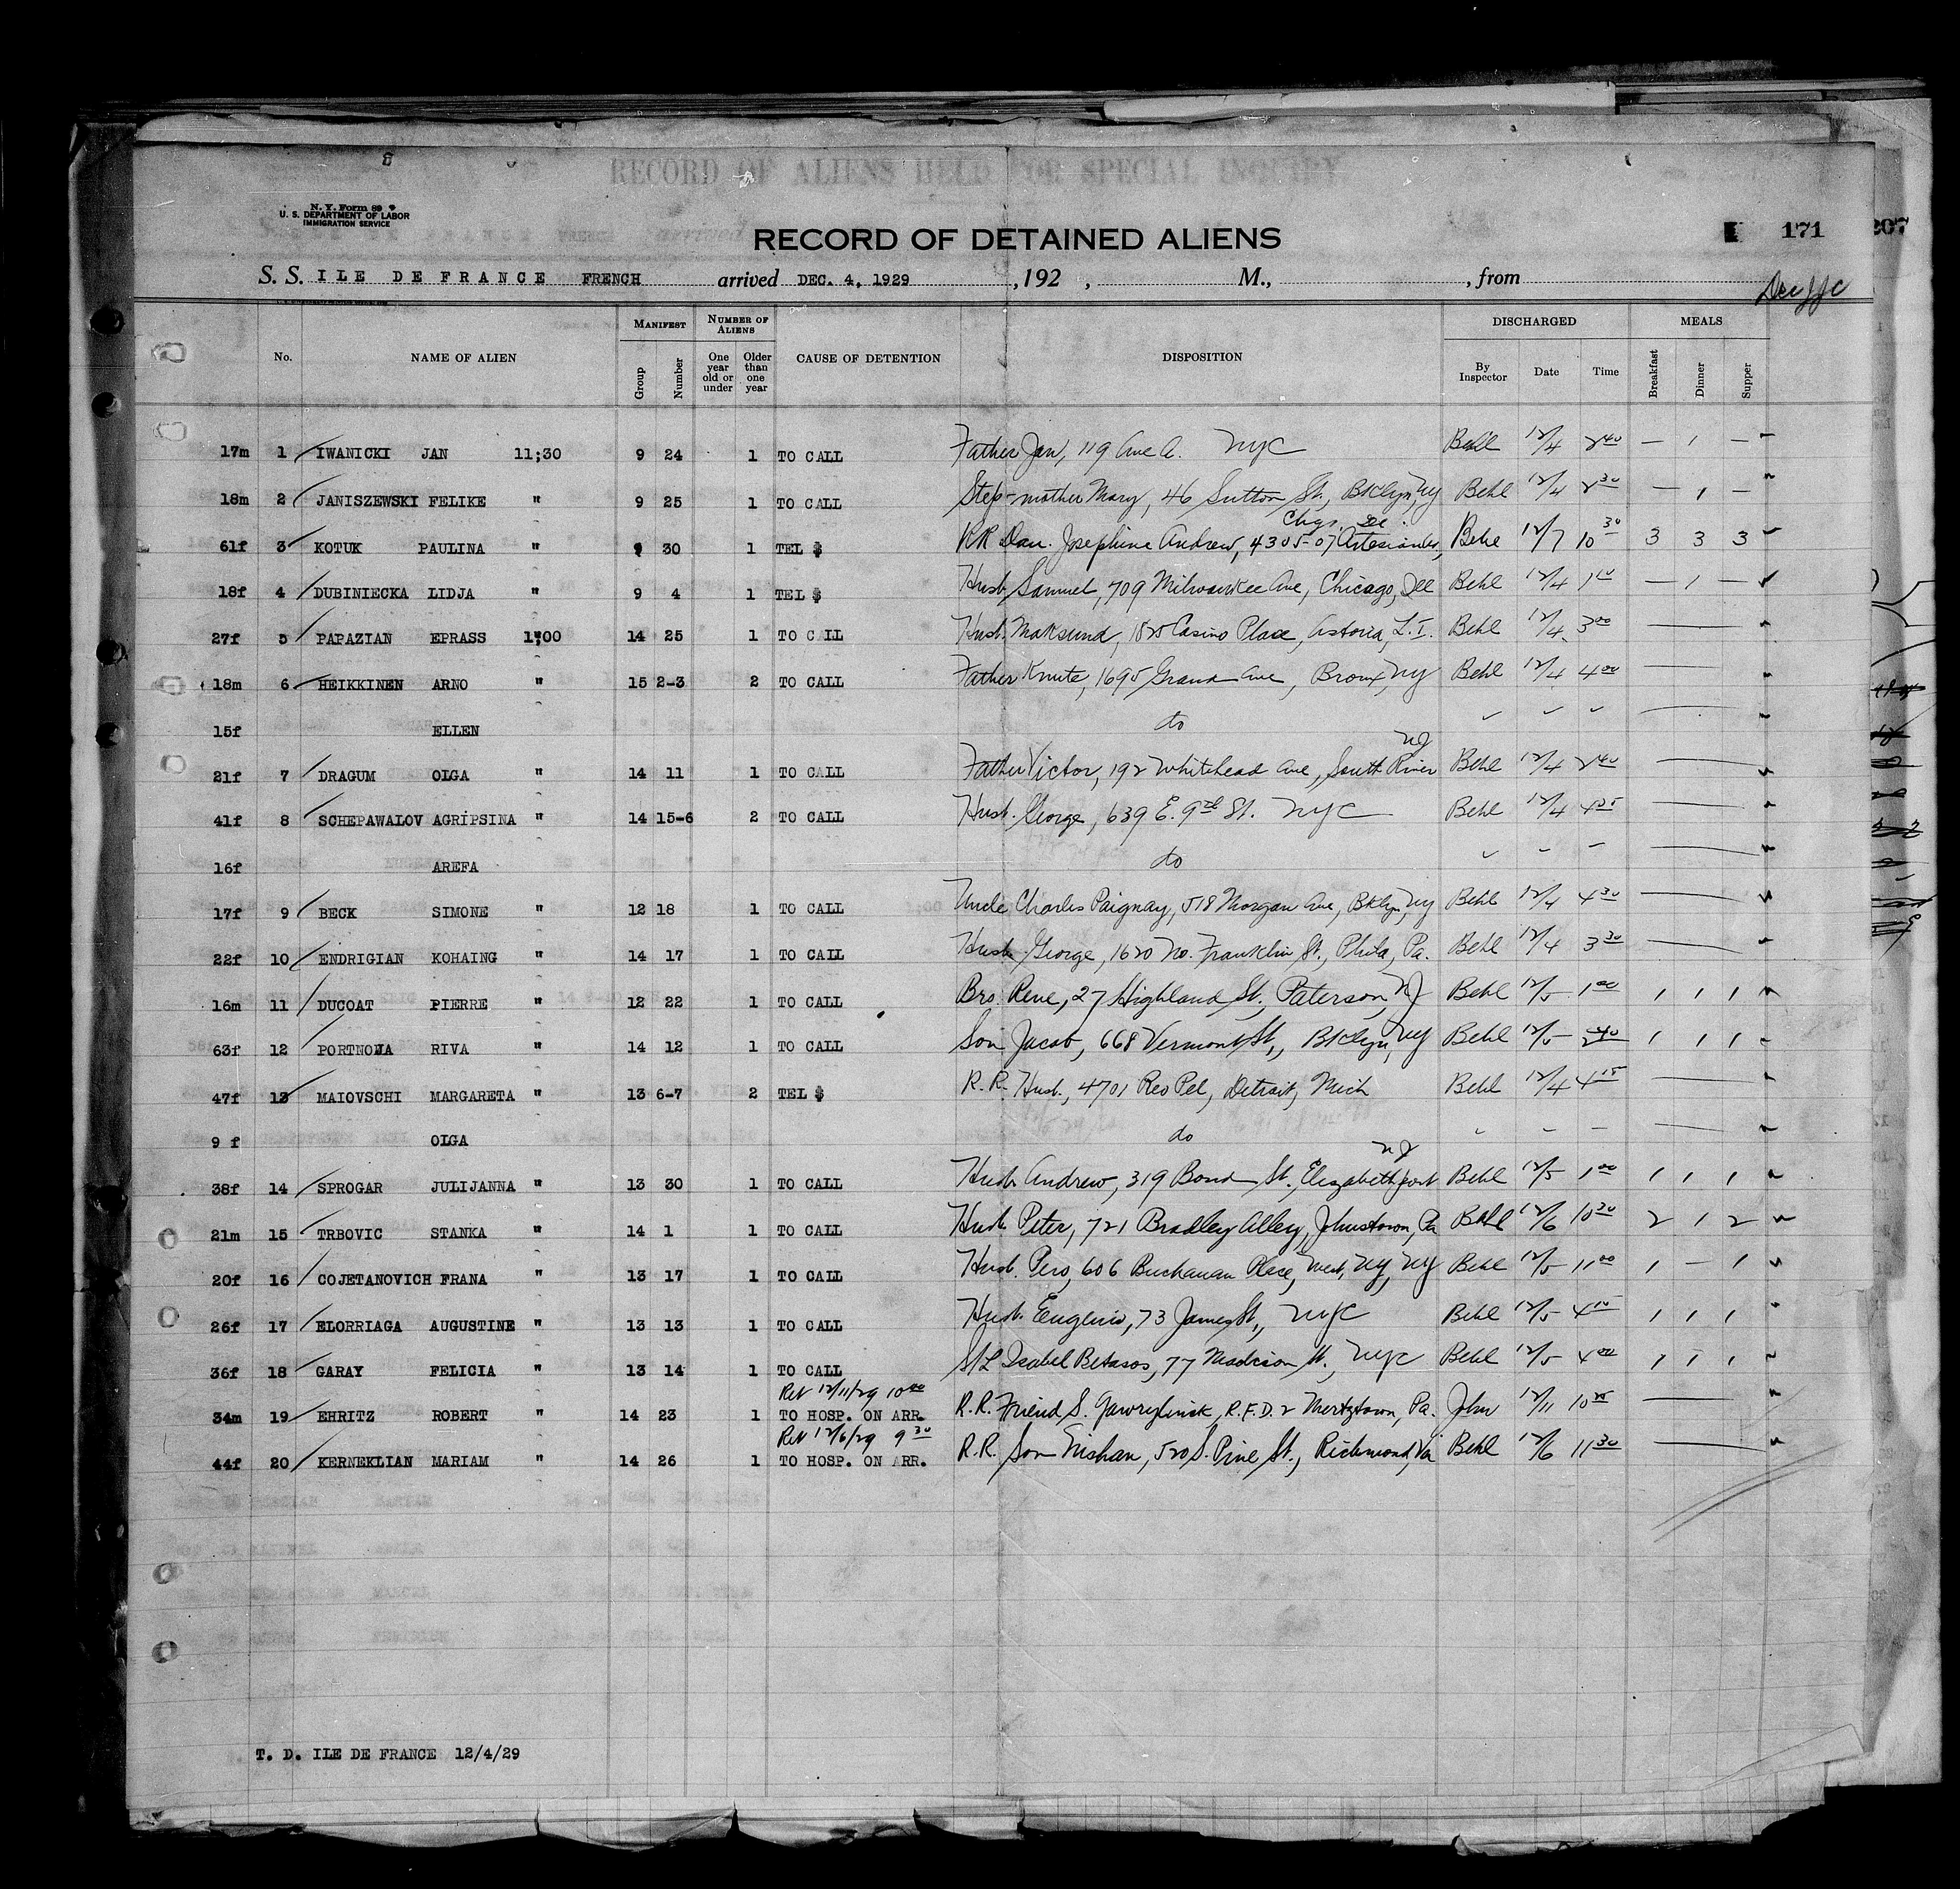 RECORD OF ALIENS HELD FOR SPECIAL INQUIRY.
N. Y. Form 89
U. S. DEPARTMENT OF LABOR
IMMIGRATION SERVICE
RECORD OF DETAINED ALIENS
171 207
S. S. ILE DE FRANCE FRENCH arrived DEC. 4, 1929 , 192 , M., , from
No. NAME OF ALIEN MANIFEST Group Number NUMBER OF ALIENS One year old or under Older than one year CAUSE OF DETENTION DISPOSITION DISCHARGED By Inspector Date Time MEALS Breakfast Dinner Supper
17m 1 IWANICKI JAN 11;30 9 24 1 TO CALL Father Jan, 119 Ave A. NYC Behl 12/4 2 40 — 1 —
18m 2 JANISZEWSKI FELIKE " 9 25 1 TO CALL Step-mother Mary, 46 Sutton St., Bklyn, NY Behl 12/4 2 30 — 1 —
Chgo. Ill.
61f 3 KOTUK PAULINA " 9 30 1 TEL $ RR Dau. Josephine Andrew, 4305-07 Artesian Ave, Behl 12/7 10 30 3 3 3
18f 4 DUBINIECKA LIDJA " 9 4 1 TEL $ Husb. Samuel, 709 Milwaukee Ave, Chicago, Ill Behl 12/4 1 10 — 1 —
27f 5 PAPAZIAN EPRASS 1;00 14 25 1 TO CALL Husb. Maksund, 1825 Casino Place, Astoria, L. I. Behl 12/4 3 00
18m 6 HEIKKINEN ARNO " 15 2-3 2 TO CALL Father Knute, 1695 Grand Ave, Bronx, NY Behl 12/4 4 00
15f ELLEN do
NJ
21f 7 DRAGUM OLGA " 14 11 1 TO CALL Father Victor, 192 Whitehead Ave, South River Behl 12/4 2 40
41f 8 SCHEPAWALOV AGRIPSINA " 14 15-6 2 TO CALL Husb. George, 639 E. 9th St. NYC Behl 12/4 4 25
16f AREFA do
17f 9 BECK SIMONE " 12 18 1 TO CALL Uncle Charles Paignay, 518 Morgan Ave, Bklyn, NY Behl 12/4 4 30
22f 10 ENDRIGIAN KOHAING " 14 17 1 TO CALL Husb George, 1620 No. Franklin St., Phila, Pa. Behl 12/4 3 30
16m 11 DUCOAT PIERRE " 12 22 1 TO CALL Bro. Rene, 27 Highland St., Paterson, NJ Behl 12/5 1 00 1 1 1
63f 12 PORTNOWA RIVA " 14 12 1 TO CALL Son Jacob, 668 Vermont St., Bklyn, NY Behl 12/5 2 40 1 1 1
47f 13 MAIOVSCHI MARGARETA " 13 6-7 2 TEL $ R. R. Husb., 4701 Reo Pel, Detroit, Mich Behl 12/4 4 15
9 f OLGA do
NJ
38f 14 SPROGAR JULIJANNA " 13 30 1 TO CALL Husb Andrew, 319 Bond St., Elizabethport Behl 12/5 1 00 1 1 1
21m 15 TRBOVIC STANKA " 14 1 1 TO CALL Husb Peter, 721 Bradley Alley, Johnstown, Pa Behl 12/6 10 30 2 1 2
20f 16 COJETANOVICH FRANA " 13 17 1 TO CALL Husb. Pero, 606 Buchanan Place, West, NY, NY Behl 12/5 11 00 1 — 1
26f 17 ELORRIAGA AUGUSTINE " 13 13 1 TO CALL Husb. Eugenio, 73 James St., NYC Behl 12/5 4 10 1 1 1
36f 18 GARAY FELICIA " 13 14 1 TO CALL S/L Isabel Betasos, 77 Madison St., NYC Behl 12/5 4 00 1 1 1
Ret 12/11/29 10 00
34m 19 EHRITZ ROBERT " 14 23 1 TO HOSP. ON ARR. R. R. Friend S. R.F.D. 2 Mertztown, Pa. John 12/11 10 25
Ret 12/6/29 9 30
44f 20 KERNEKLIAN MARIAM " 14 26 1 TO HOSP. ON ARR. R. R. Son Nishan, 520 S. Pine St., Richmond, Va Behl 12/6 11 30
T. D. ILE DE FRANCE 12/4/29